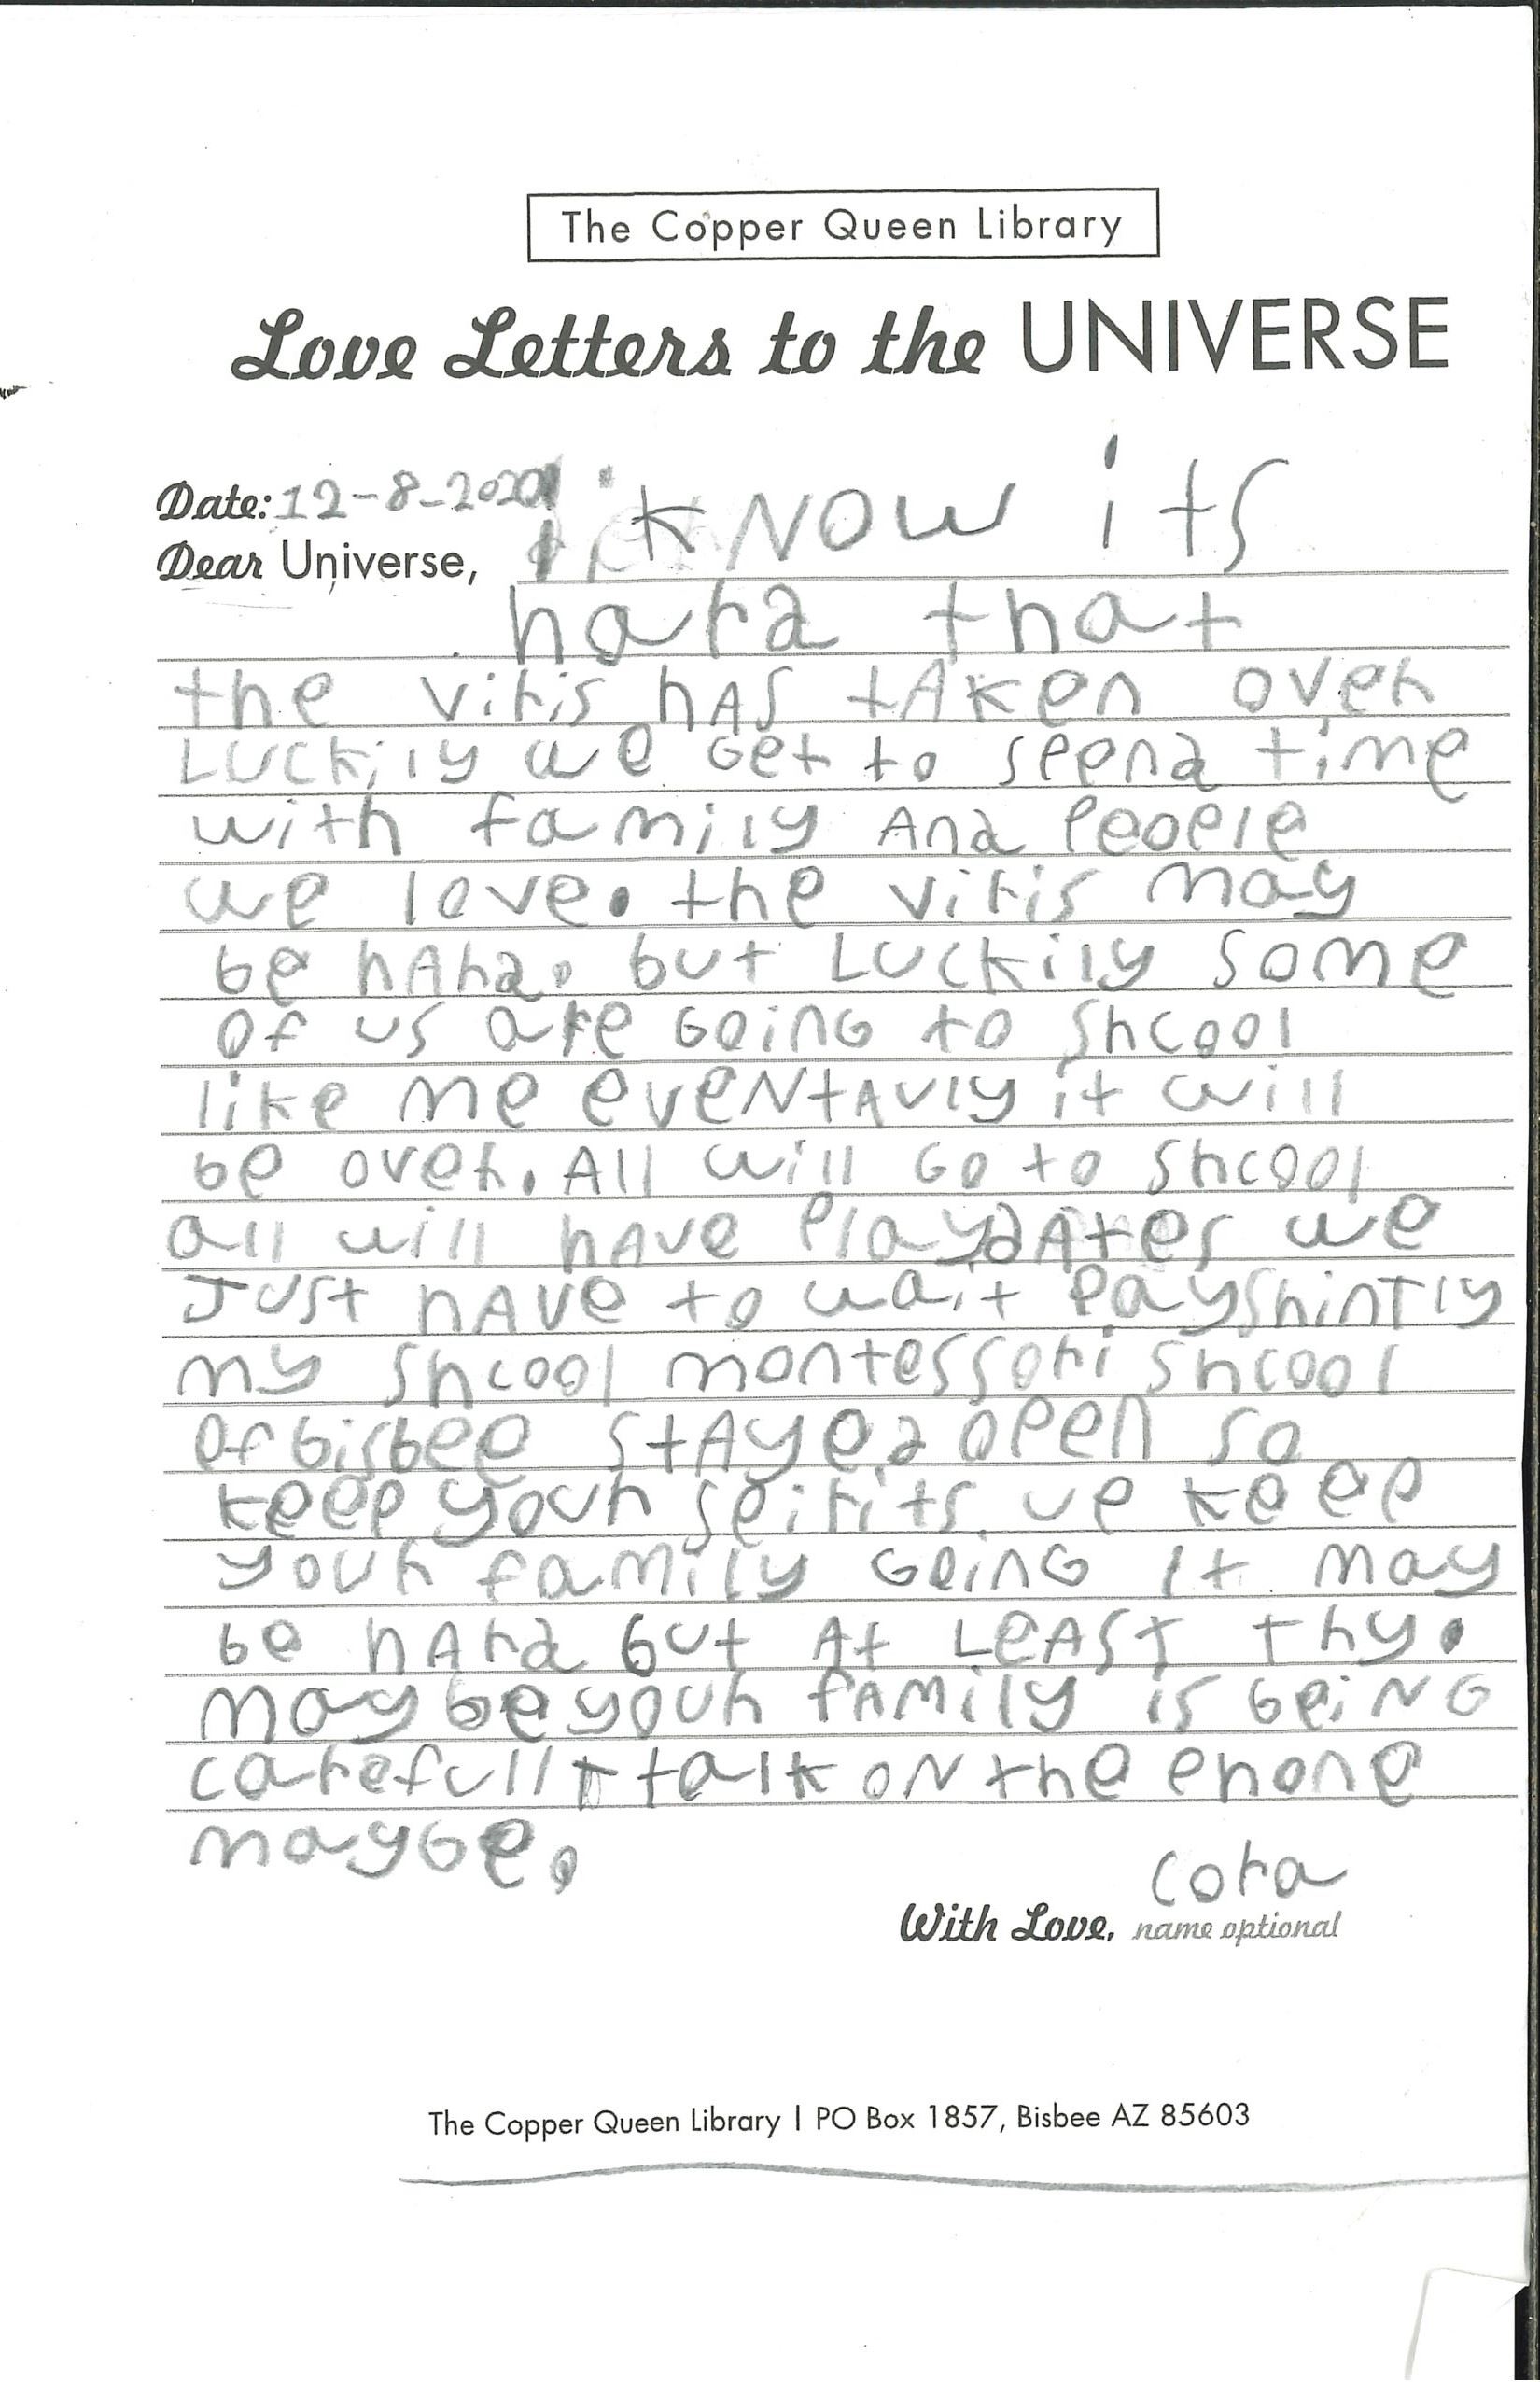 The Copper Queen Library
Love Letters to the UNIVERSE
Date: 12-8-2020
Dear Universe, i know its
hard that
the viris hAs tAken over
Luckily we Get to spend time
with family And people
we love. the viris may
be hArd. but Luckily some
of us are GoinG to shcool
like me eveNtAvly it will
be over. All will Go to shcool
all will hAve playdAtes we
Just hAve to wait payshintly
my shcool montessori shcool
of bisbee stAyed open so
keep your spirits up keep
your family GoinG It may
be hArd but At LeAst thy.
may be your fAmily is beiNG
carefull talk oN the phone
maybe.
cora
With Love, name optional
The Copper Queen Library | PO Box 1857, Bisbee AZ 85603